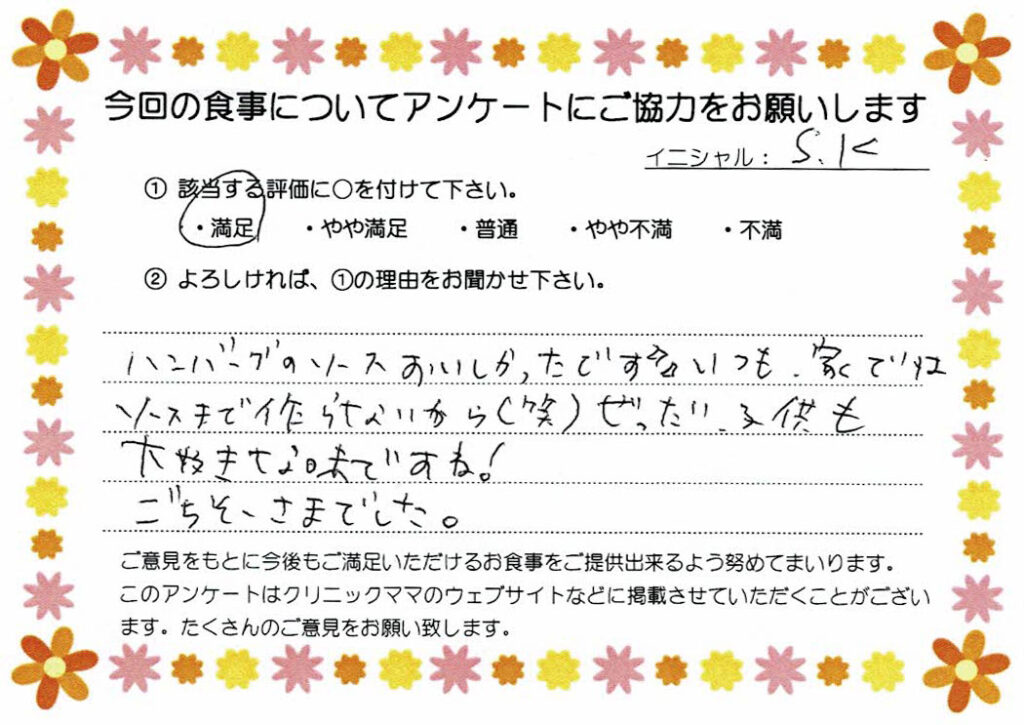 今回の食事についてアンケートにご協力をお願いします
イニシャル： S.K
① 該当する評価に○を付けて下さい。
・満足 ・やや満足 ・普通 ・やや不満 ・不満
② よろしければ、①の理由をお聞かせ下さい。
ハンバーグのソースおいしかったです いつも、家では
ソースまで作らないから(笑)ぜったい、子供も
大好きな味ですね!
ごちそうさまでした。
ご意見をもとに今後もご満足いただけるお食事をご提供出来るよう努めてまいります。
このアンケートはクリニックママのウェブサイトなどに掲載させていただくことがござい
ます。たくさんのご意見をお願い致します。